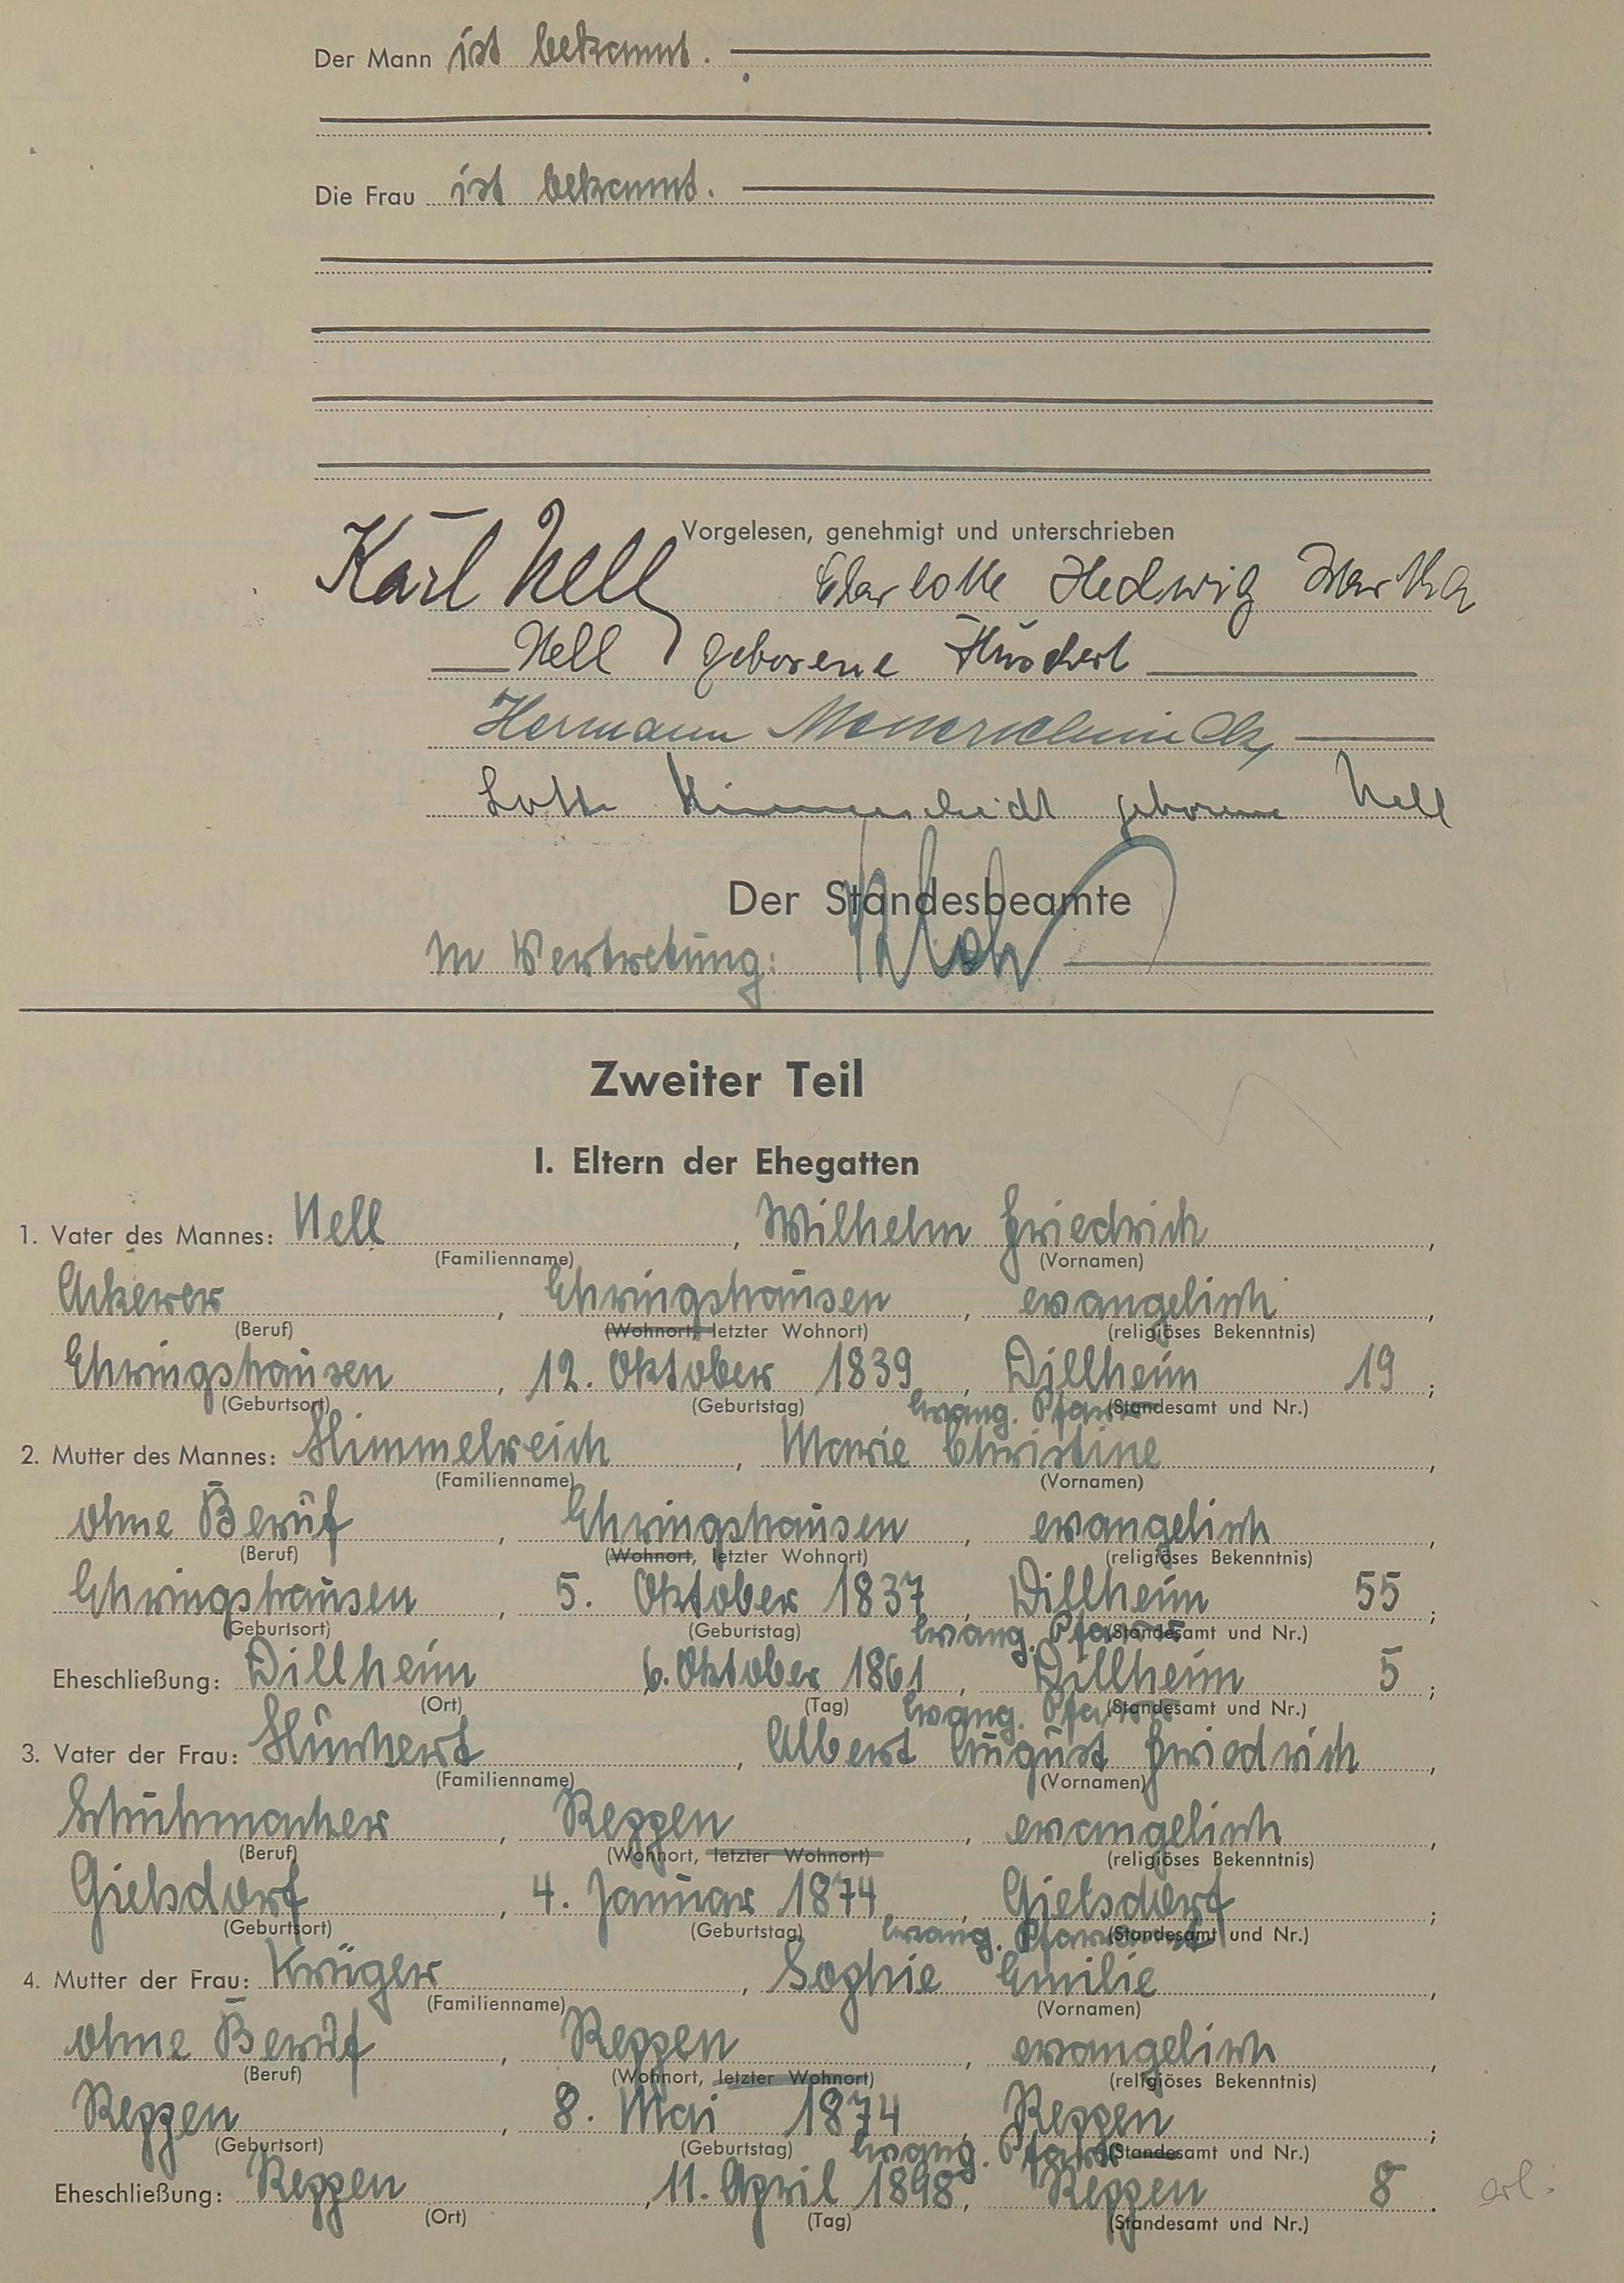 Der Mann ist bekannt.
Die Frau ist bekannt.
Vorgelesen, genehmigt und unterschrieben
Karl Nell Charlotte Hedwig Martha
Nell geborene Hüchert
Hermann
Lotte geborene Nell
Der Standesbeamte
In Vertretung:
Zweiter Teil
I. Eltern der Ehegatten
1. Vater des Mannes: Nell, Wilhelm Friedrich,
(Familienname) (Vornamen)
Ackerer, Ehringshausen, evangelisch,
(Beruf) (Wohnort, letzter Wohnort) (religiöses Bekenntnis)
Ehringshausen, 12. Oktober 1839, Dillheim 19;
(Geburtsort) (Geburtstag) Evang. Pfarr (Standesamt und Nr.)
2. Mutter des Mannes: Himmelreich, Marie Christine,
(Familienname) (Vornamen)
ohne Beruf, Ehringshausen, evangelisch,
(Beruf) (Wohnort, letzter Wohnort) (religiöses Bekenntnis)
Ehringshausen, 5. Oktober 1837, Dillheim 55;
(Geburtsort) (Geburtstag) Evang. Pfarr (Standesamt und Nr.)
Eheschließung: Dillheim 6. Oktober 1861, Dillheim 5;
(Ort) (Tag) Evang. Pfarr (Standesamt und Nr.)
3. Vater der Frau: Hüchert, Albert August Friedrich,
(Familienname) (Vornamen)
Schuhmacher, Reppen, evangelisch,
(Beruf) (Wohnort, letzter Wohnort) (religiöses Bekenntnis)
Gielsdorf, 4. Januar 1874, Gielsdorf;
(Geburtsort) (Geburtstag) Evang. Pfarramt (Standesamt und Nr.)
4. Mutter der Frau: Krüger, Sophie Emilie,
(Familienname) (Vornamen)
ohne Beruf, Reppen, evangelisch,
(Beruf) (Wohnort, letzter Wohnort) (religiöses Bekenntnis)
Reppen, 8. Mai 1874, Reppen;
(Geburtsort) (Geburtstag) Evang. Pfarr (Standesamt und Nr.)
Eheschließung: Reppen, 11. April 1898, Reppen 8. erl.
(Ort) (Tag) (Standesamt und Nr.)